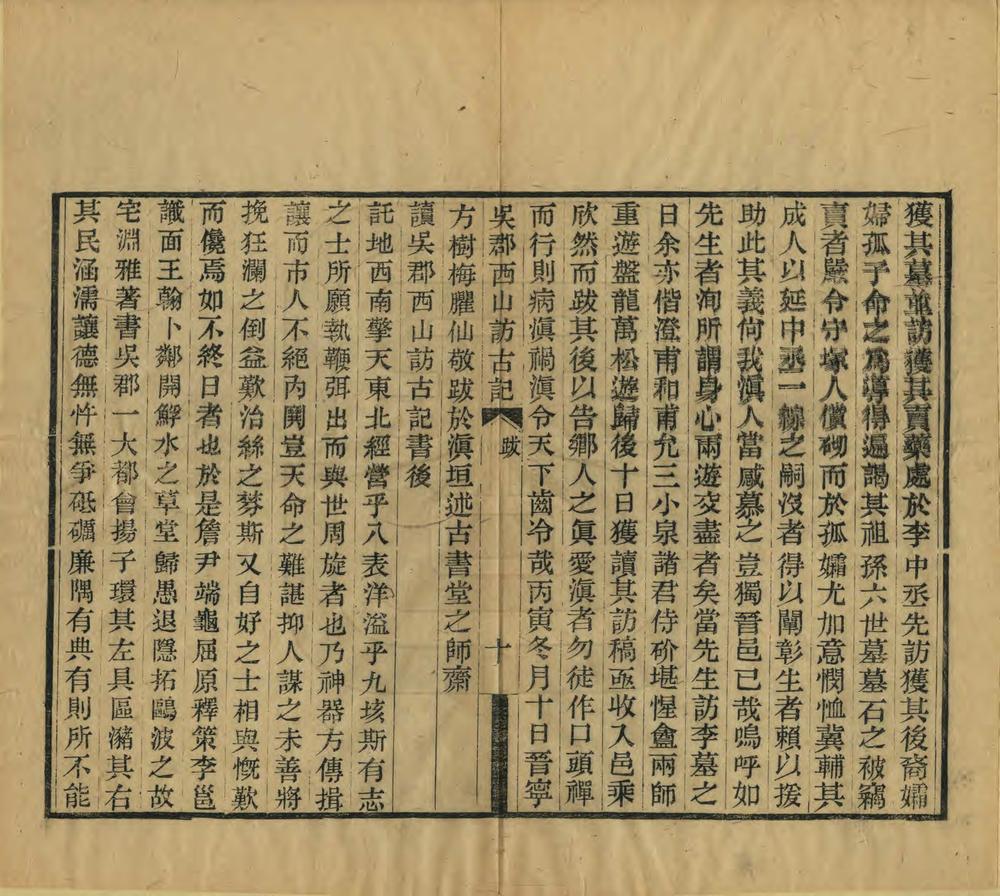 獲其墓並訪獲其賣藥處於李中丞先訪獲其後裔孀
婦孤子命之爲導得遍謁其祖孫六世墓墓石之被竊
賣者嚴令守塚人償砌而於孤孀尤加意憫恤冀輔其
成人以延中丞一線之嗣沒者得以闡彰生者賴以援
助此其義尙我滇人當感慕之豈獨晉邑已哉嗚呼如
先生者洵所謂身心兩遊交盡者矣當先生訪李墓之
日余亦偕澄甫和甫允三小泉諸君侍矿堪惺盦兩師
重遊盤龍萬松遊歸後十日獲讀其訪稿亟收入邑乘
欣然而跋其後以告鄉人之眞愛滇者勿徒作口頭禪
而行則病滇禍滇令天下齒冷哉丙寅冬月十日晉寧
吳郡西山訪古記 跋 十
方樹梅臞仙敬跋於滇垣述古書堂之師齋
讀吳郡西山訪古記書後
託地西南擎天東北經營乎八表洋溢乎九垓斯有志
之士所願執鞭弭出而與世周旋者也乃神器方傳揖
讓而市人不絕內鬨豈天命之難諶抑人謀之未善將
挽狂瀾之倒益歎治絲之棼斯又自好之士相與慨歎
而儳焉如不終日者也於是詹尹端龜屈原釋策李邕
識面王翰卜鄰開鮮水之草堂歸愚退隱拓鷗波之故
宅淵雅著書吳郡一大都會揚子環其左具區瀦其右
其民涵濡讓德無忤無爭砥礪廉隅有典有則所不能